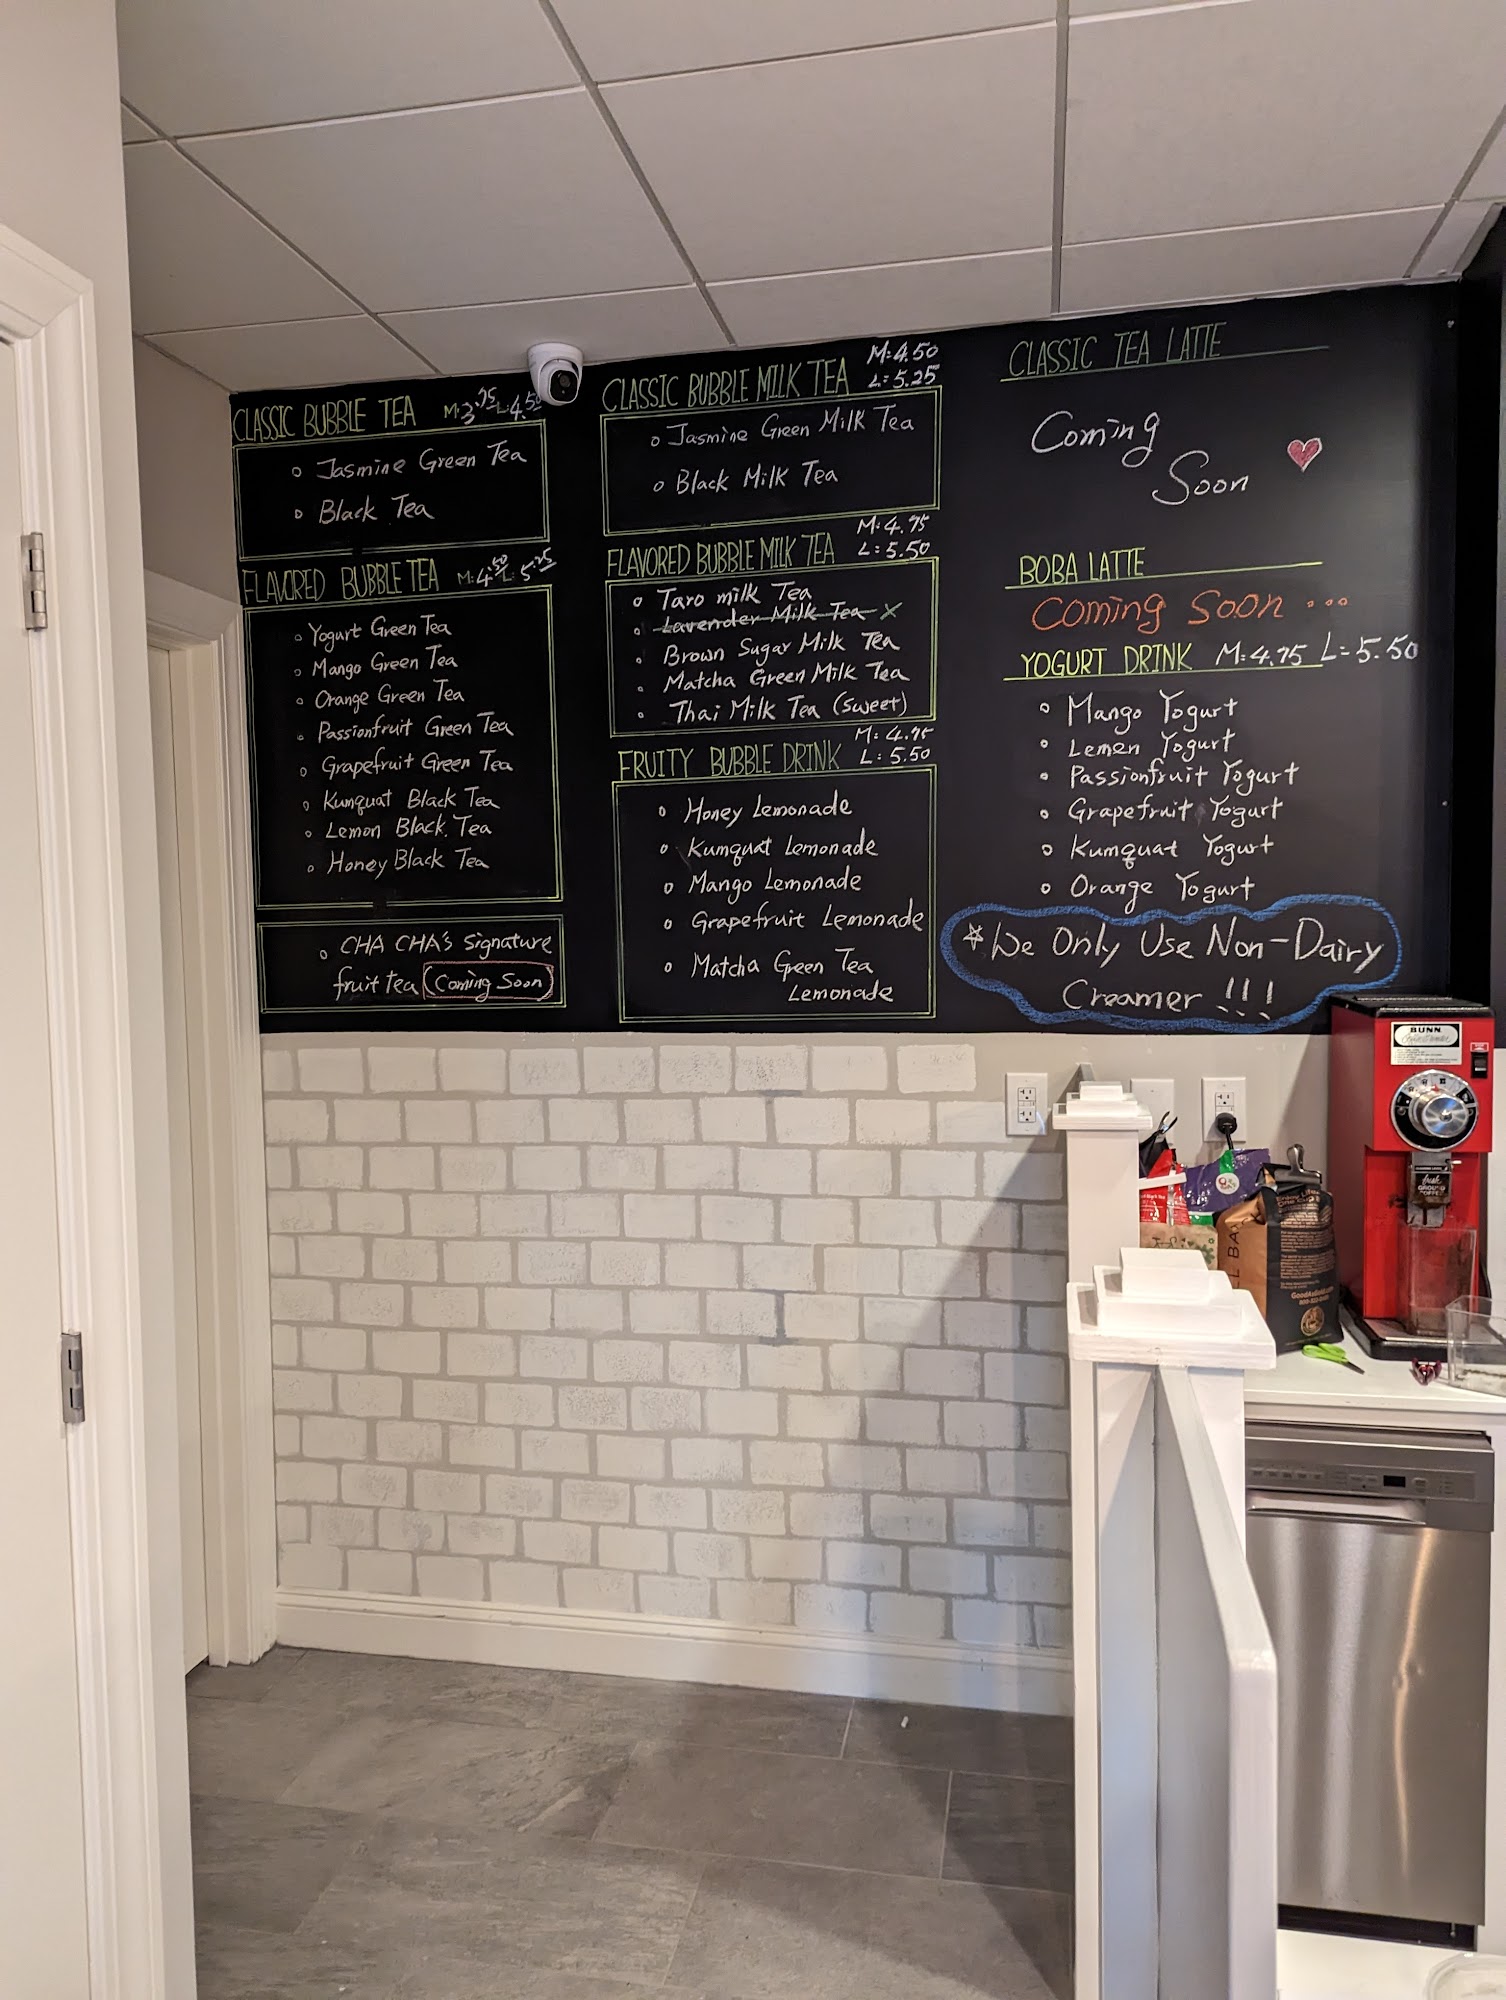 CLASSIC BUBBLE TEA M: 3.75 L: 4.50
Jasmine Green Tea
Black Tea
FLAVORED BUBBLE TEA M: 4.50 L: 5.25
Yogurt Green Tea
Mango Green Tea
Orange Green Tea
Passionfruit Green Tea
Grapefruit Green Tea
Kumquat Black Tea
Lemon Black Tea
Honey Black Tea
CHA CHA's Signature
fruit tea (Coming Soon)
CLASSIC BUBBLE MILK TEA M: 4.50
L: 5.25
Jasmine Green Milk Tea
Black Milk Tea
FLAVORED BUBBLE MILK TEA M: 4.75
L: 5.50
Taro milk Tea
Lavender Milk Tea X
Brown Sugar Milk Tea
Matcha Green Milk Tea
Thai Milk Tea (Sweet)
FRUITY BUBBLE DRINK M: 4.75
L: 5.50
Honey Lemonade
Kumquat Lemonade
Mango Lemonade
Grapefruit Lemonade
Matcha Green Tea
Lemonade
CLASSIC TEA LATTE
Coming
Soon
BOBA LATTE
Coming Soon ...
YOGURT DRINK M: 4.75 L: 5.50
Mango Yogurt
Lemon Yogurt
Passionfruit Yogurt
Grapefruit Yogurt
Kumquat Yogurt
Orange Yogurt
*We Only Use Non-Dairy
Creamer !!!
BUNN
fresh
GROUND
COFFEE